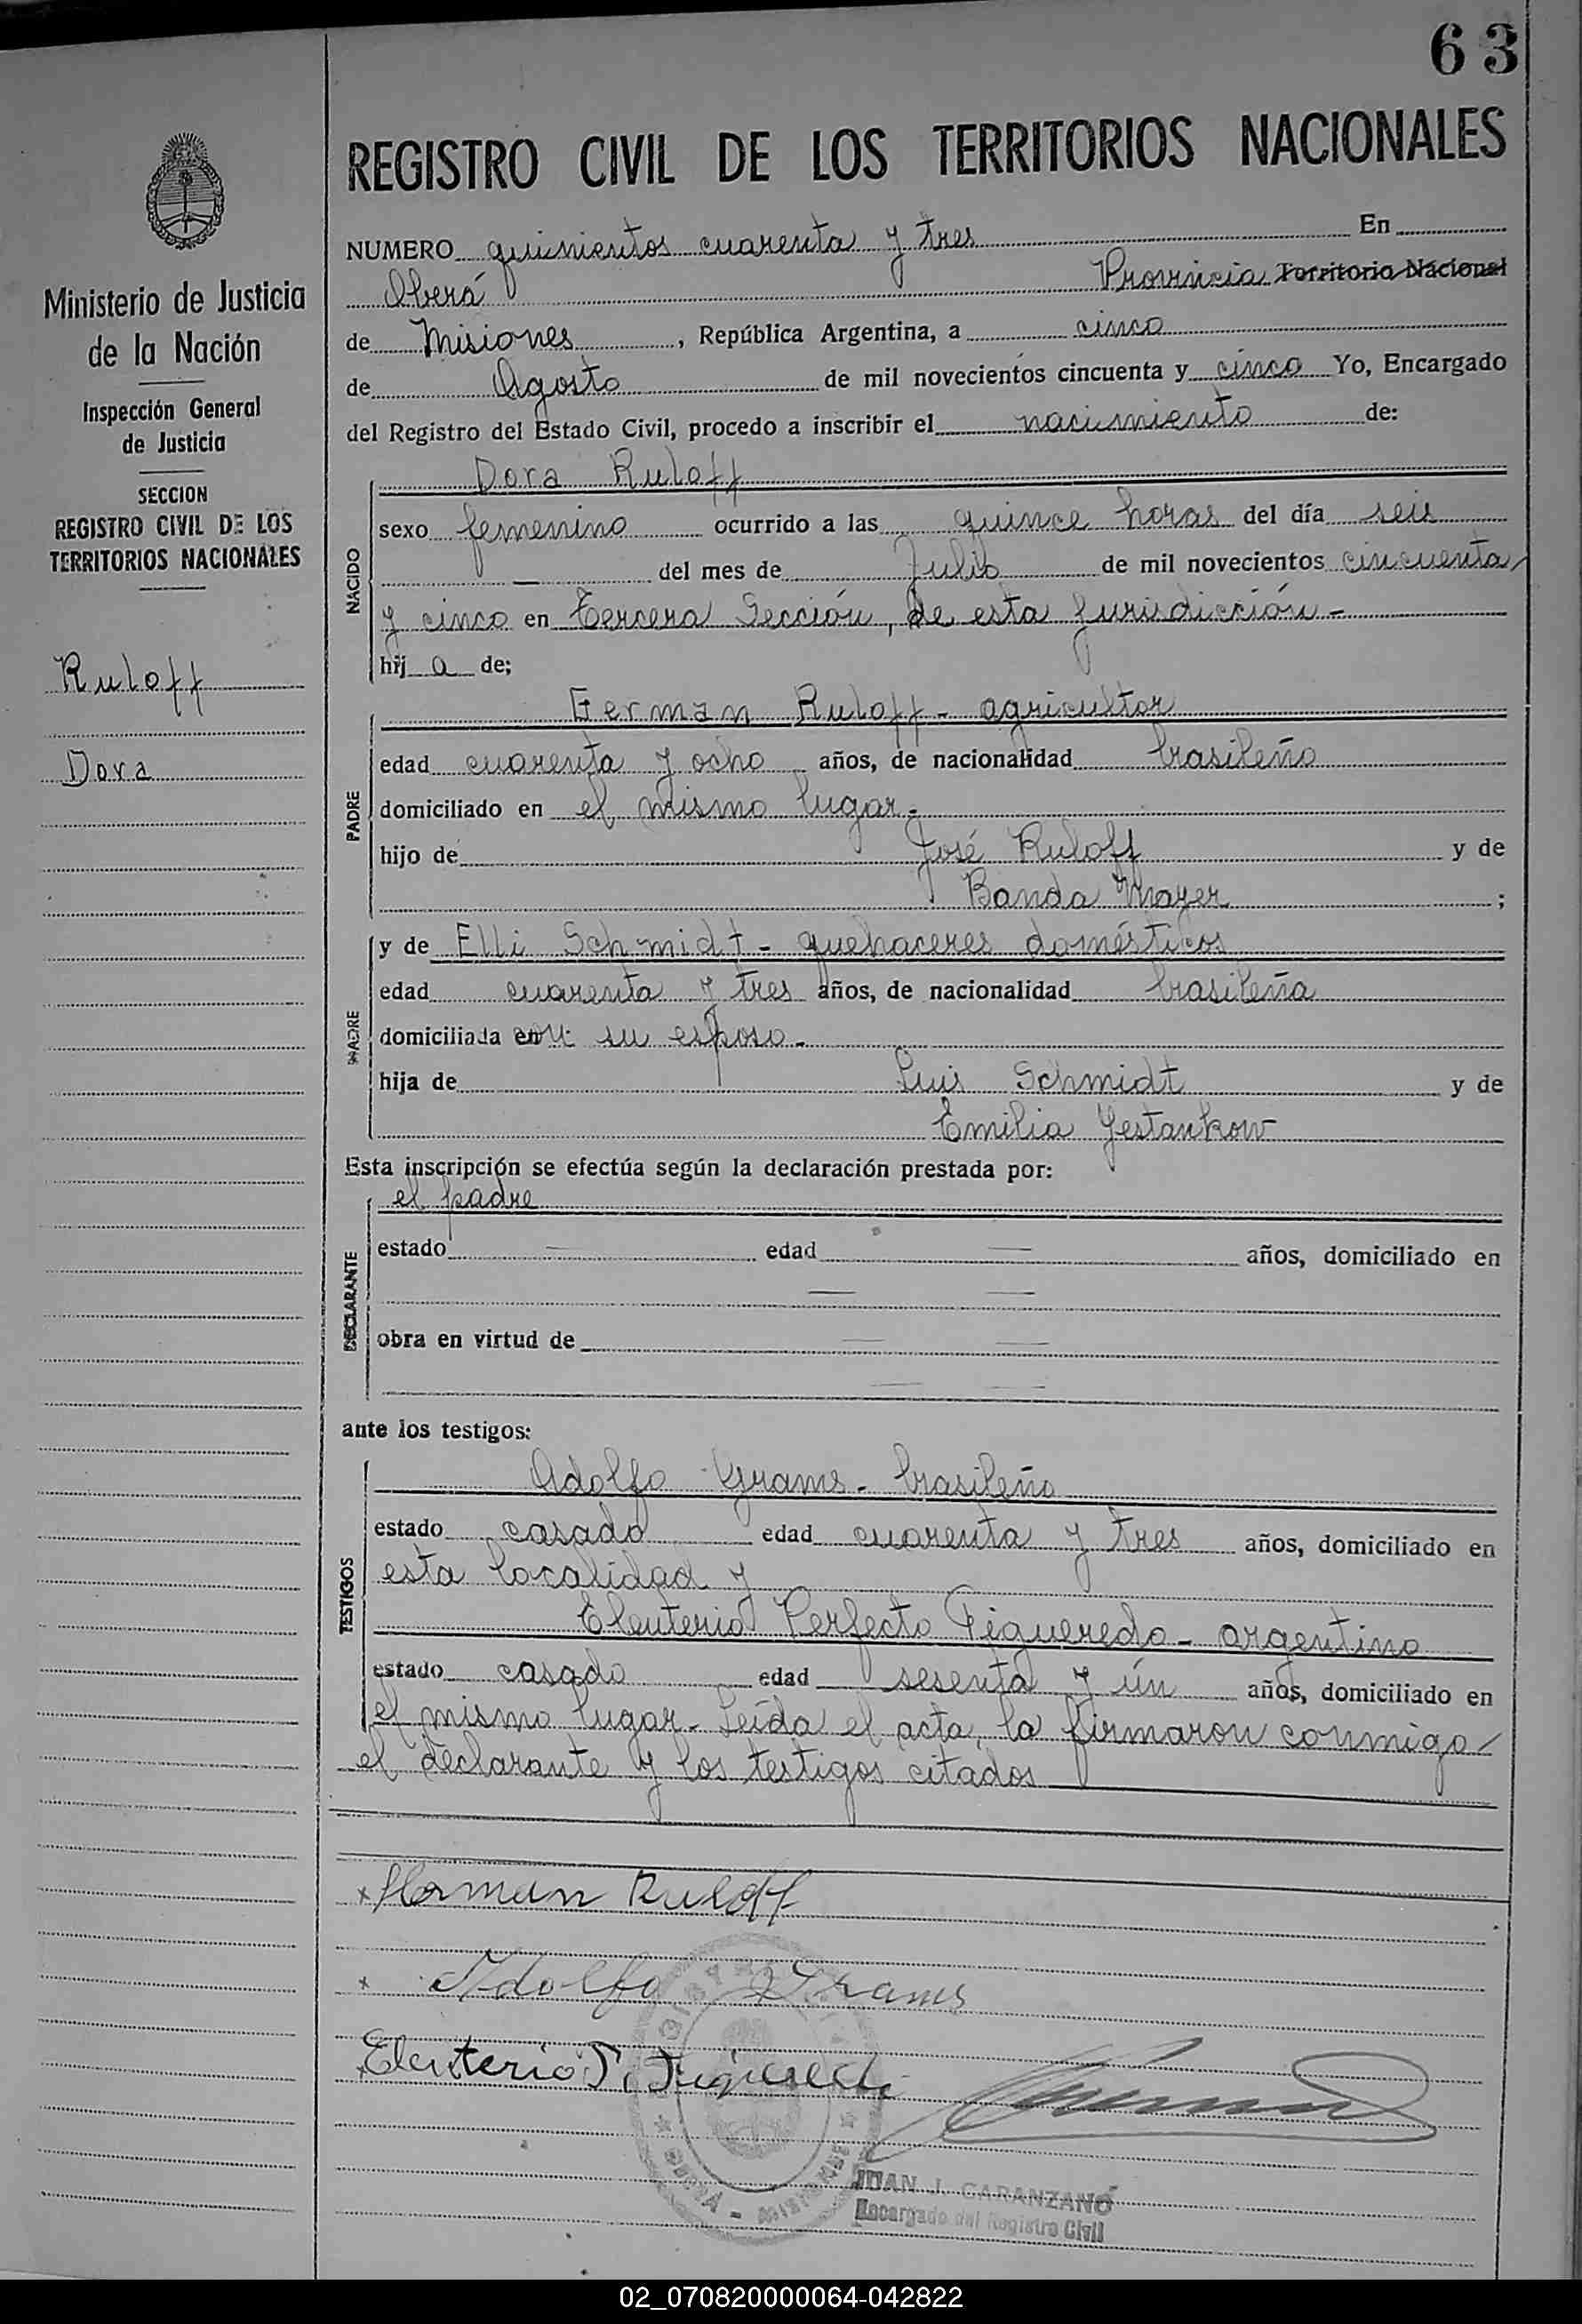 63
REGISTRO CIVIL DE LOS TERRITORIOS NACIONALES
Ministerio de Justicia
de la Nación
Inspección General
de Justicia
SECCION
REGISTRO CIVIL DE LOS
TERRITORIOS NACIONALES
Ruloff
Dora
NUMERO quinientos cuarenta y tres En
Oberá Provincia Territorio Nacional
de Misiones, República Argentina, a cinco
de Agosto de mil novecientos cincuenta y cinco Yo, Encargado
del Registro del Estado Civil, procedo a inscribir el nacimiento de:
NACIDO
Dora Ruloff
sexo femenino ocurrido a las quince horas del día seis
— del mes de Julio de mil novecientos cincuenta
y cinco en tercera Sección, de esta jurisdicción -
hij a de;
PADRE
German Ruloff - agricultor
edad cuarenta y ocho años, de nacionalidad brasileño
domiciliado en el mismo lugar -
hijo de José Ruloff y de
Banda Mayer ;
MADRE
y de Elli Schmidt - quehaceres domésticos
edad cuarenta y tres años, de nacionalidad brasileña
domiciliada con su esposo -
hija de Luis Schmidt y de
Emilia Yestankow
Esta inscripción se efectúa según la declaración prestada por:
DECLARANTE
el padre
estado — edad — años, domiciliado en
— —
obra en virtud de — —
— —
ante los testigos:
TESTIGOS
Adolfo Grams - brasileño
estado casado edad cuarenta y tres años, domiciliado en
esta localidad y
Eleuterio Perfecto Figueredo - argentino
estado casado edad sesenta y ún años, domiciliado en
el mismo lugar - Leída el acta, la firmaron conmigo
el declarante y los testigos citados
x Herman Ruloff
x Adolfo Grams
Eleuterio P. Figueredo
OBERÁ - MISIONES
JUAN J. GARANZANO
Encargado del Registro Civil
02_070820000064-042822